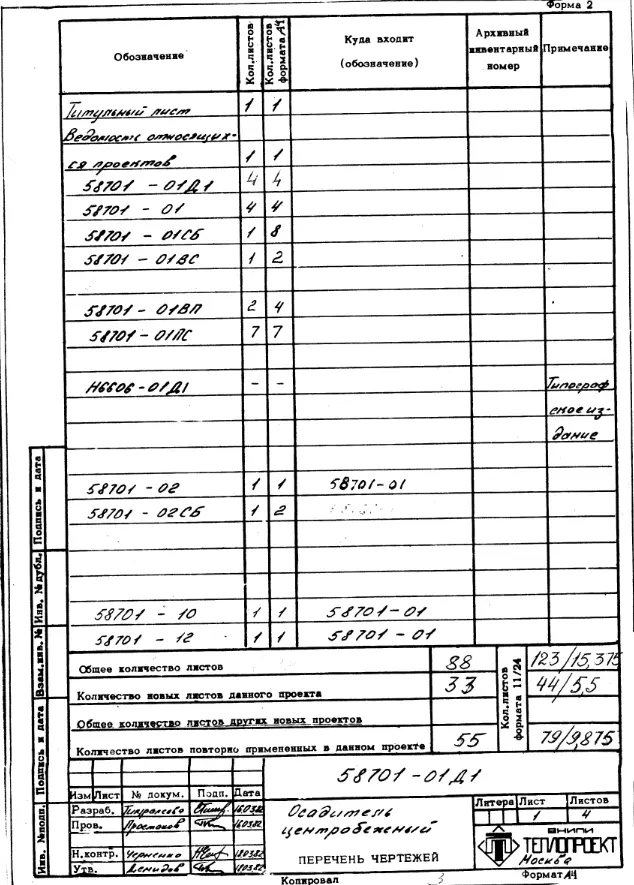 Форма 2
Обозначение Кол.листов Кол.листов формата А4 Куда входит (обозначение) Архивный инвентарный номер Примечание
Титульный лист 1 1
Ведомость относящих-
ся проектов 1 1
58701 - 01Д1 4 4
58701 - 01 4 4
58701 - 01СБ 1 8
58701 - 01ВС 1 2
58701 - 01ВП 2 4
58701 - 01ПС 7 7
Н6606-01Д1 - - Типограф
ское из-
дание
58701 - 02 1 1 58701-01
58701 - 02СБ 1 2
58701 - 10 1 1 58701-01
58701 - 12 1 1 58701 - 01
Общее количество листов 88 Кол.листов формата 11/24 123/15,375
Количество новых листов данного проекта 33 44/5,5
Общее количество листов других новых проектов
Количество листов повторно примененных в данном проекте 55 79/9,875
Инв. №подл. Подпись и дата Взам.инв. № Инв. №дубл. Подпись и дата
58701-01Д1
Изм Лист № докум. Подп. Дата
Разраб. 16.03.82
Пров. 16.03.82
Н.контр. Черненко 18.03.82
Утв. Демидов
Осадитель
центробежный
ПЕРЕЧЕНЬ ЧЕРТЕЖЕЙ
Литера Лист Листов
1 4
ВНИПИ
ТЕПЛОПРОЕКТ
Москва
Копировал 3 Формат А4